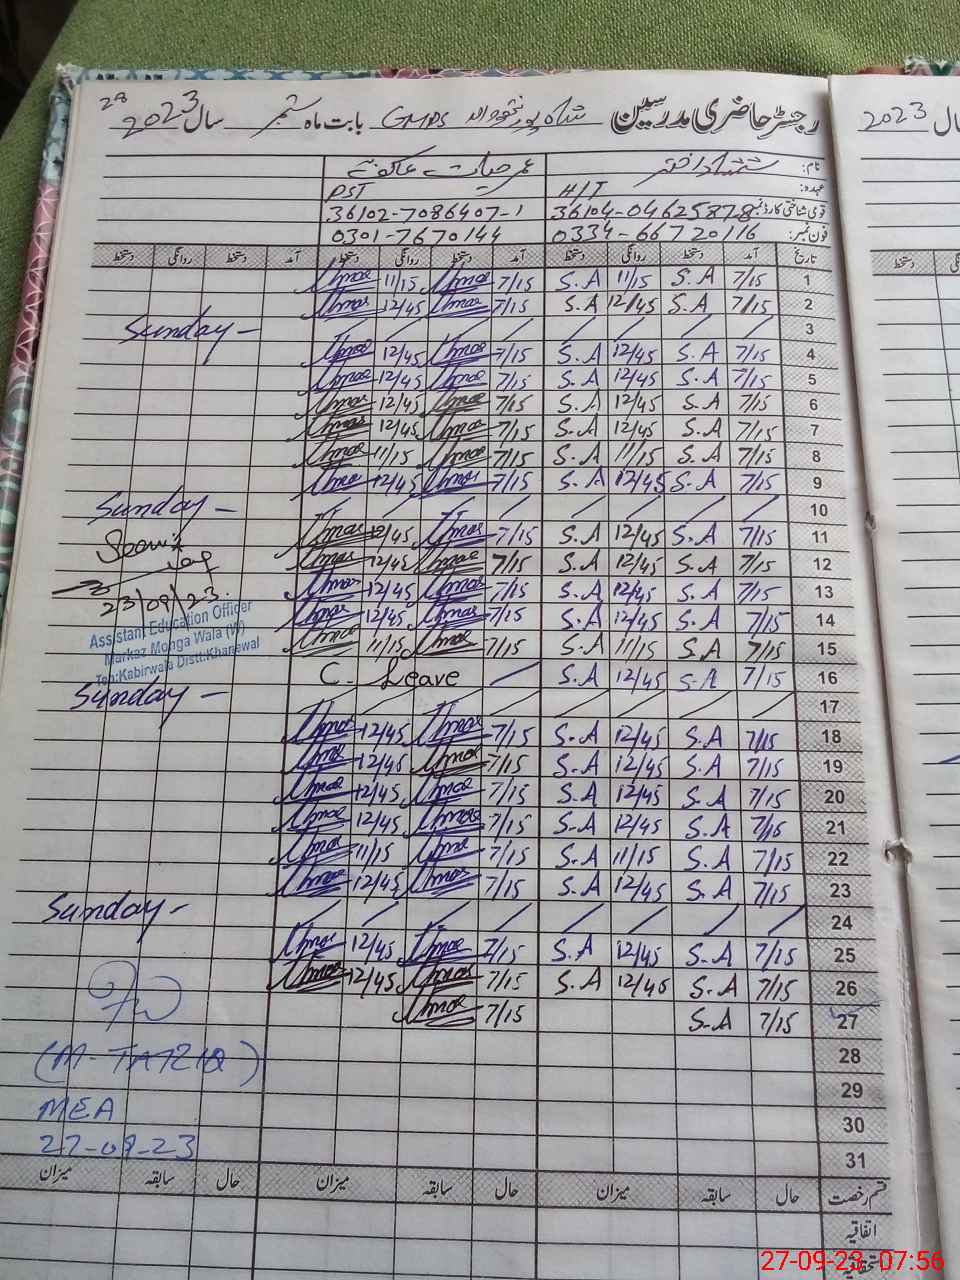 28
رجسٹر حاضری مدرسین GMPS شاہ پور بابت ماہ ستمبر سال 2023
نام: شمشاد اختر عمر حیات
عہدہ: H/T PST
قومی شناختی کارڈ نمبر: 36104-0462587-8 36102-7086407-1
فون نمبر: 0334-6672016 0301-7670144
تاریخ آمد دستخط روانگی دستخط آمد دستخط روانگی دستخط آمد دستخط روانگی دستخط
1 7/15 S.A 11/15 S.A 7/15 Umar 11/15 Umar
2 7/15 S.A 12/45 S.A 7/15 Umar 12/45 Umar
3 Sunday -
4 7/15 S.A 12/45 S.A 7/15 Umar 12/45 Umar
5 7/15 S.A 12/45 S.A 7/15 Umar 12/45 Umar
6 7/15 S.A 12/45 S.A 7/15 Umar 12/45 Umar
7 7/15 S.A 12/45 S.A 7/15 Umar 12/45 Umar
8 7/15 S.A 11/15 S.A 7/15 Umar 11/15 Umar
9 7/15 S.A 12/45 S.A 7/15 Umar 12/45 Umar
10 Sunday -
11 7/15 S.A 12/45 S.A 7/15 Umar 12/45 Umar
12 7/15 S.A 12/45 S.A 7/15 Umar 12/45 Umar
13 7/15 S.A 12/45 S.A 7/15 Umar 12/45 Umar
14 7/15 S.A 12/45 S.A 7/15 Umar 12/45 Umar
15 7/15 S.A 11/15 S.A 7/15 Umar 11/15 Umar
16 7/15 S.A 12/45 S.A C. Leave
23/09/23.
Assistant Education Officer
Markaz Monga Wala (W)
Teh:Kabirwala Distt:Khanewal
17 Sunday -
18 7/15 S.A 12/45 S.A 7/15 Umar 12/45 Umar
19 7/15 S.A 12/45 S.A 7/15 Umar 12/45 Umar
20 7/15 S.A 12/45 S.A 7/15 Umar 12/45 Umar
21 7/15 S.A 12/45 S.A 7/15 Umar 12/45 Umar
22 7/15 S.A 11/15 S.A 7/15 Umar 11/15 Umar
23 7/15 S.A 12/45 S.A 7/15 Umar 12/45 Umar
24 Sunday -
25 7/15 S.A 12/45 S.A 7/15 Umar 12/45 Umar
26 7/15 S.A 12/45 S.A 7/15 Umar 12/45 Umar
27 7/15 S.A 7/15 Umar
28
29
30
31
(M-TARIQ)
MEA
27-09-23
قسم رخصت حال سابقہ میزان حال سابقہ میزان حال سابقہ میزان
اتفاقیہ
استحقاقیہ
سال 2023
دستخط
27-09-23 07:56